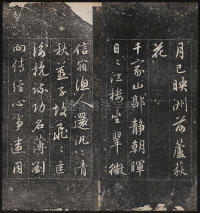 月已映洲前蘆荻
花
千家山郭靜朝暉
日日江樓坐翠微
信宿漁人還汎汎清
秋燕子故飛飛匡
衡抗疏功名薄劉
向傳經心事違同